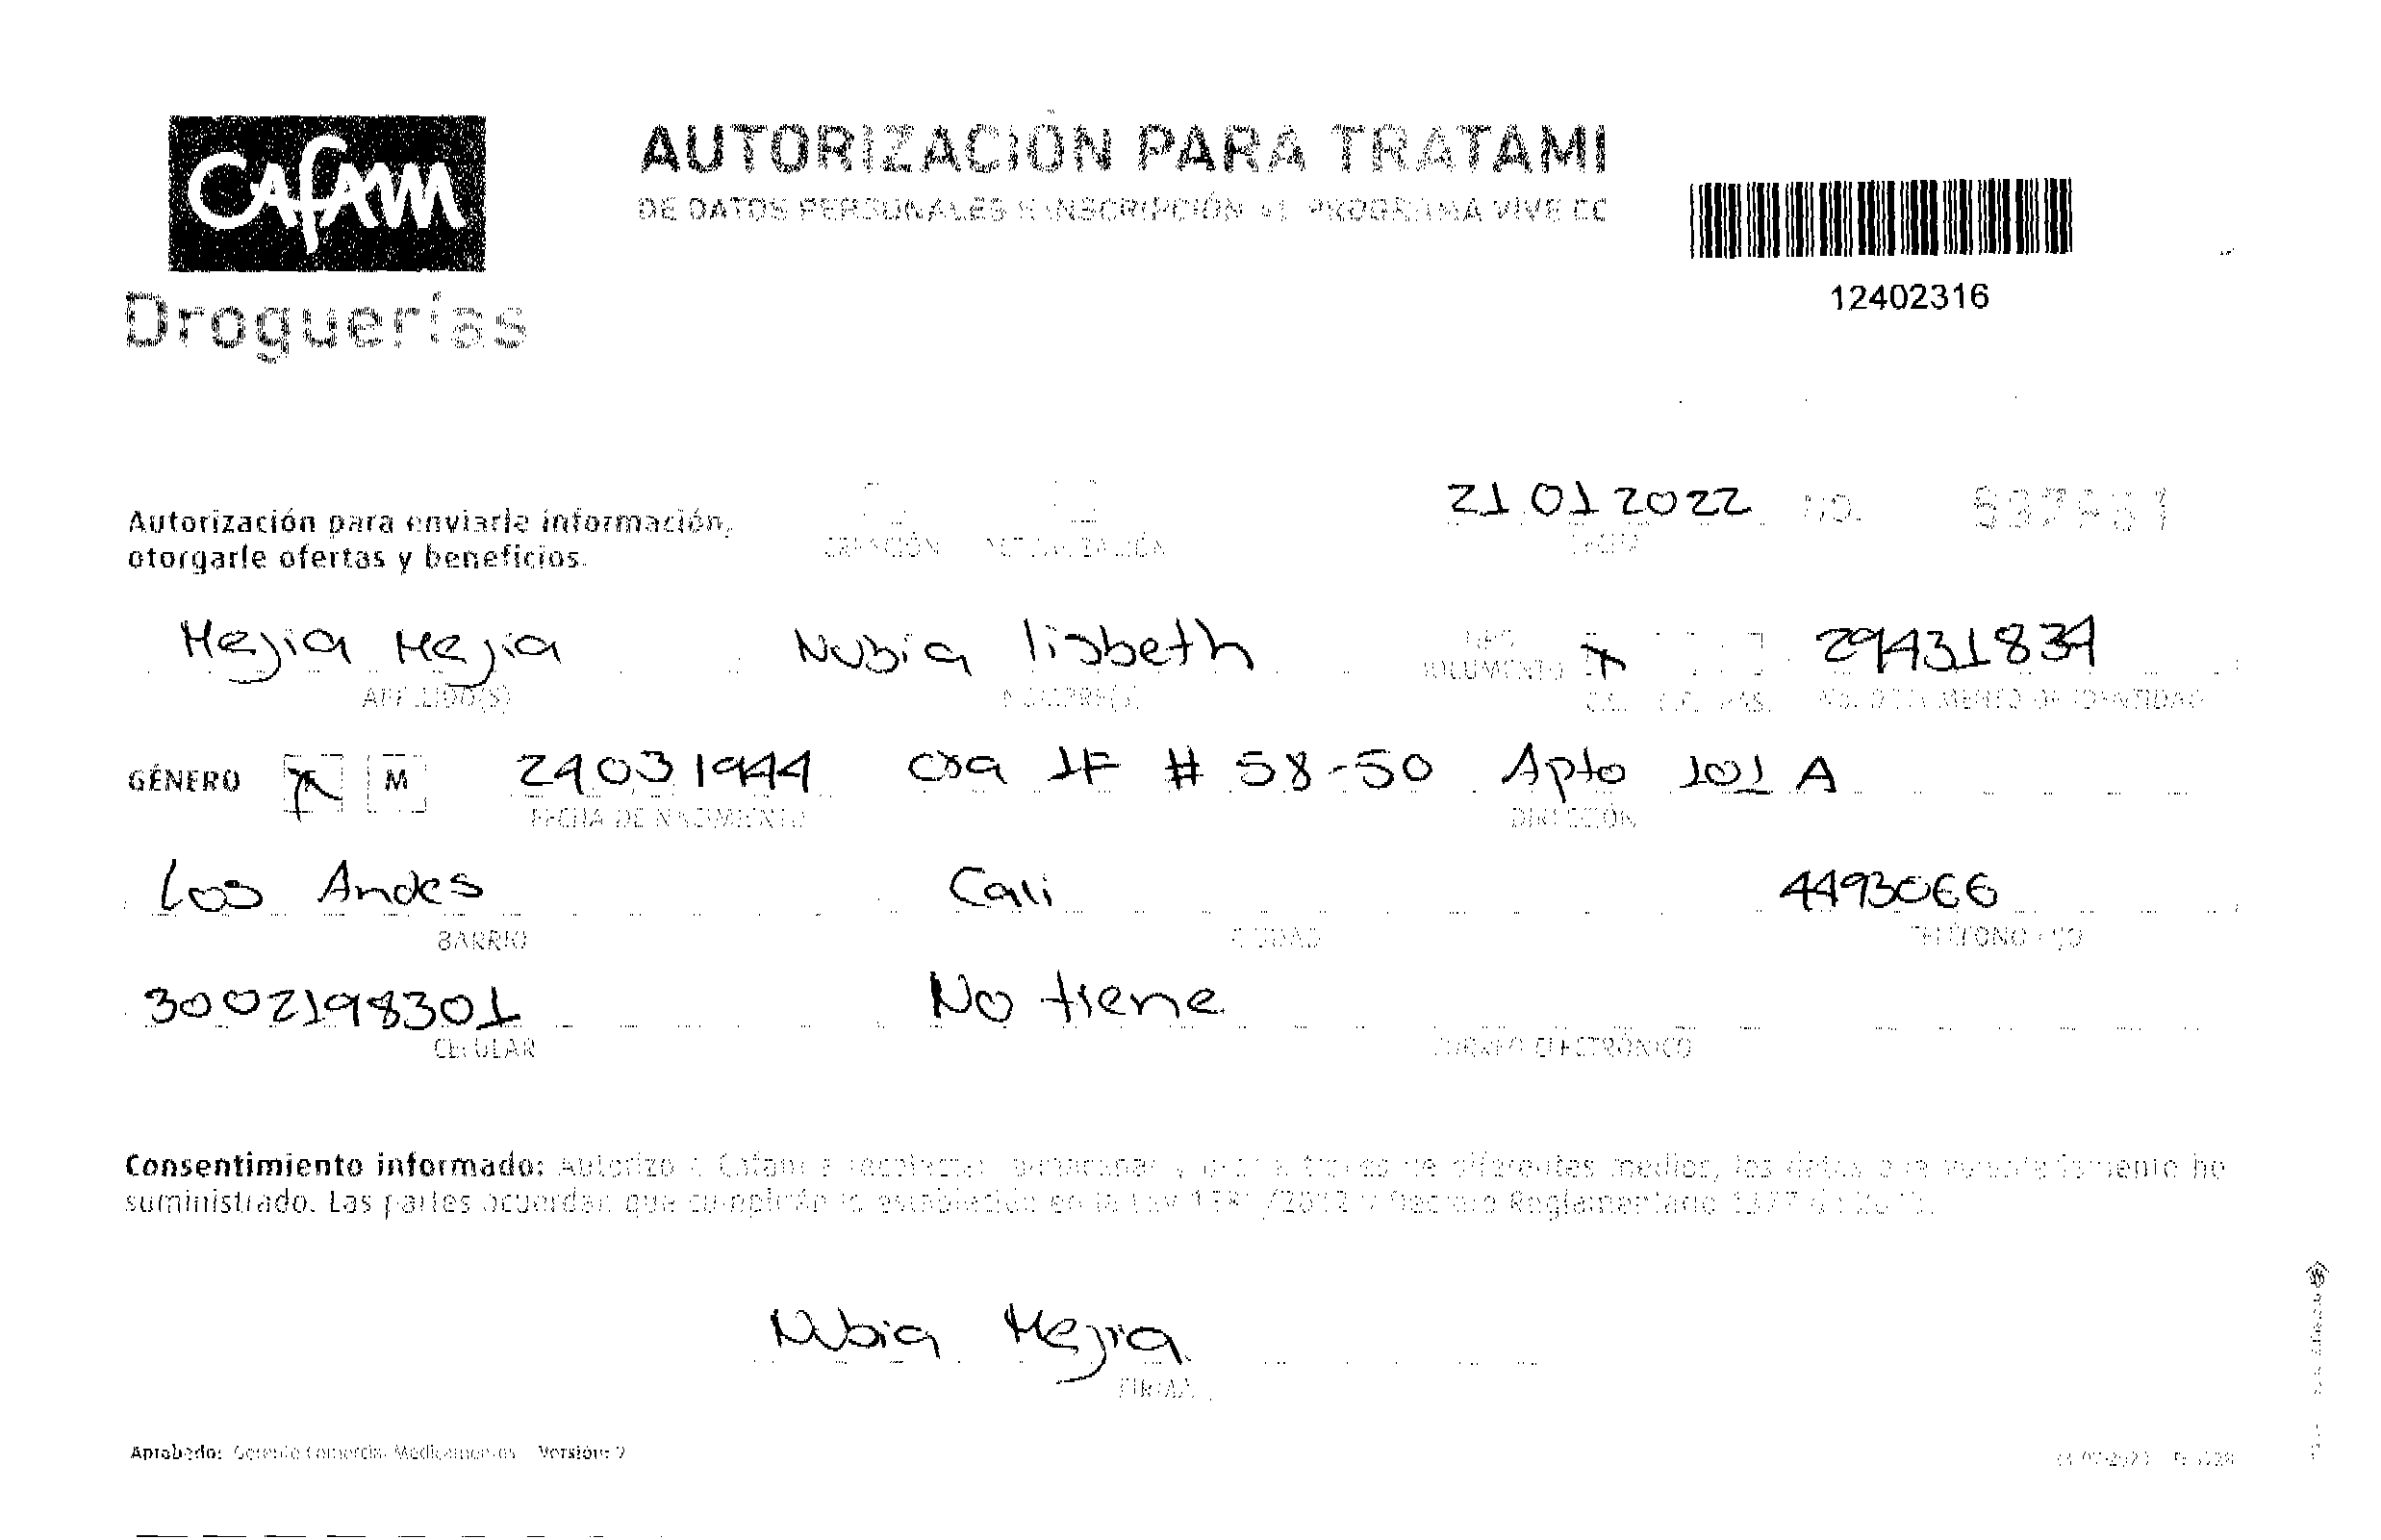 Cafam
Droguerías
AUTORIZACIÓN PARA TRATAMI
DE DATOS PERSONALES E INSCRIPCIÓN AL PROGRAMA VIVE CO
12402316
Autorización para enviarle información,
otorgarle ofertas y beneficios.
CREACIÓN ACTUALIZACIÓN
21 01 2022 NO.
FECHA
Mejia Mejia Nubia lisbeth TIPO DOCUMENTO X 29431834
APELLIDO(S) NOMBRE(S) C.C. C.E. PAS. NO. DOCUMENTO DE IDENTIDAD
GÉNERO X M 24 03 1944 cra 1F # 58-50 Apto 101 A
FECHA DE NACIMIENTO DIRECCIÓN
Los Andes Cali 4493066
BARRIO CIUDAD TELÉFONO FIJO
3002198301 No tiene
CELULAR CORREO ELECTRÓNICO
Consentimiento informado: Autorizo a Cafam a recolectar, almacenar y usar a través de diferentes medios, los datos que voluntariamente he
suministrado. Las partes acuerdan que cumplirán lo establecido en la Ley 1581/2012 y Decreto Reglamentario 1377 de 2013.
Nubia Mejia
FIRMA
Aprobado: Gerente Comercial Medicamentos Versión: 2